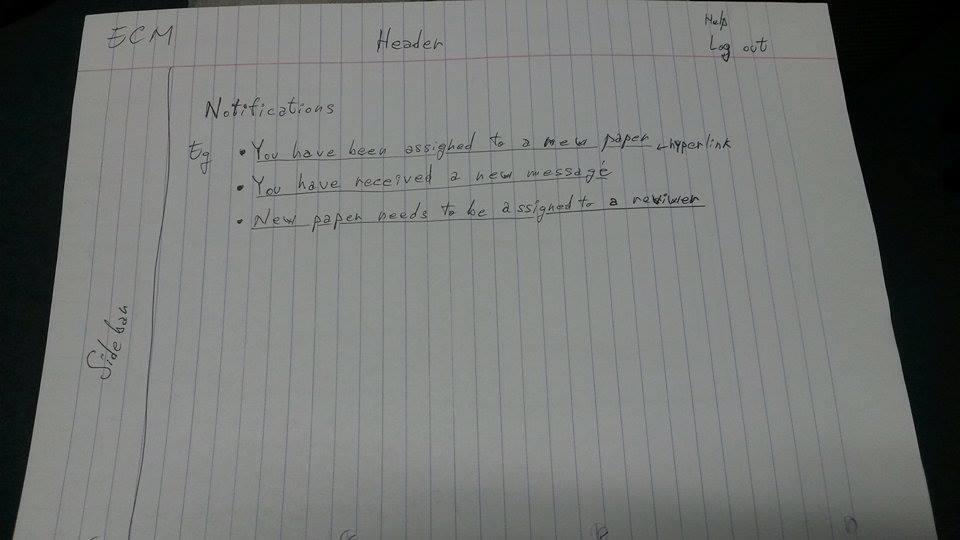 ECM
Header
Help
Log out
Notifications
Eg • You have been assigned to a new paper ← hyperlink
• You have received a new message
• New paper needs to be assigned to a reviwer
Side bar